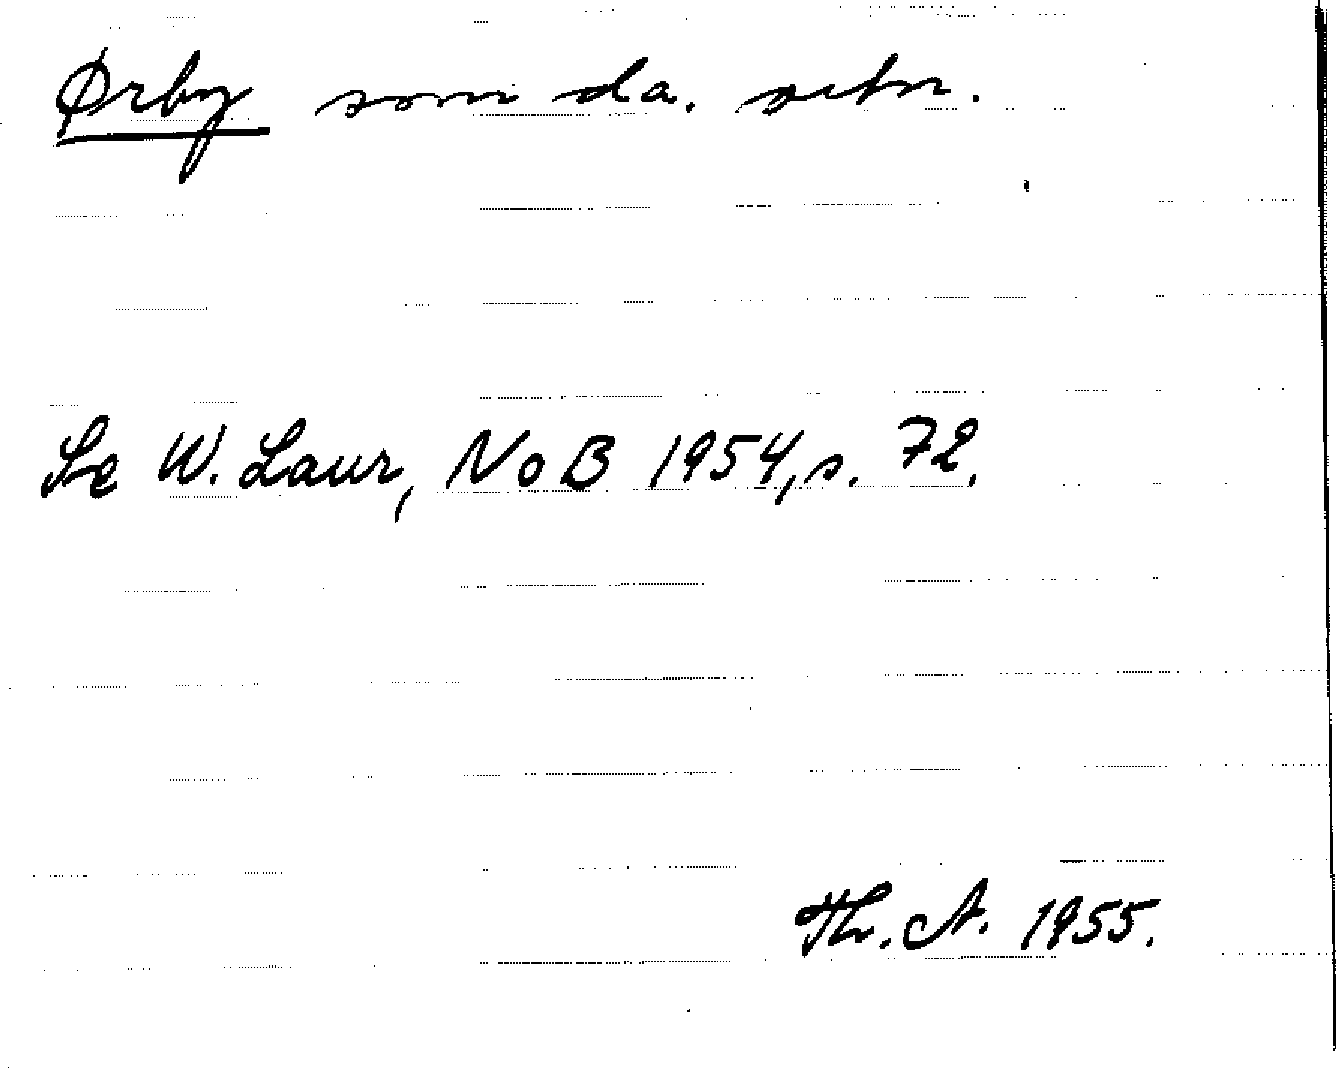 Ørby som da. setn.
Se W. Laur, NoB 1954, s. 72.
Th. A. 1955.